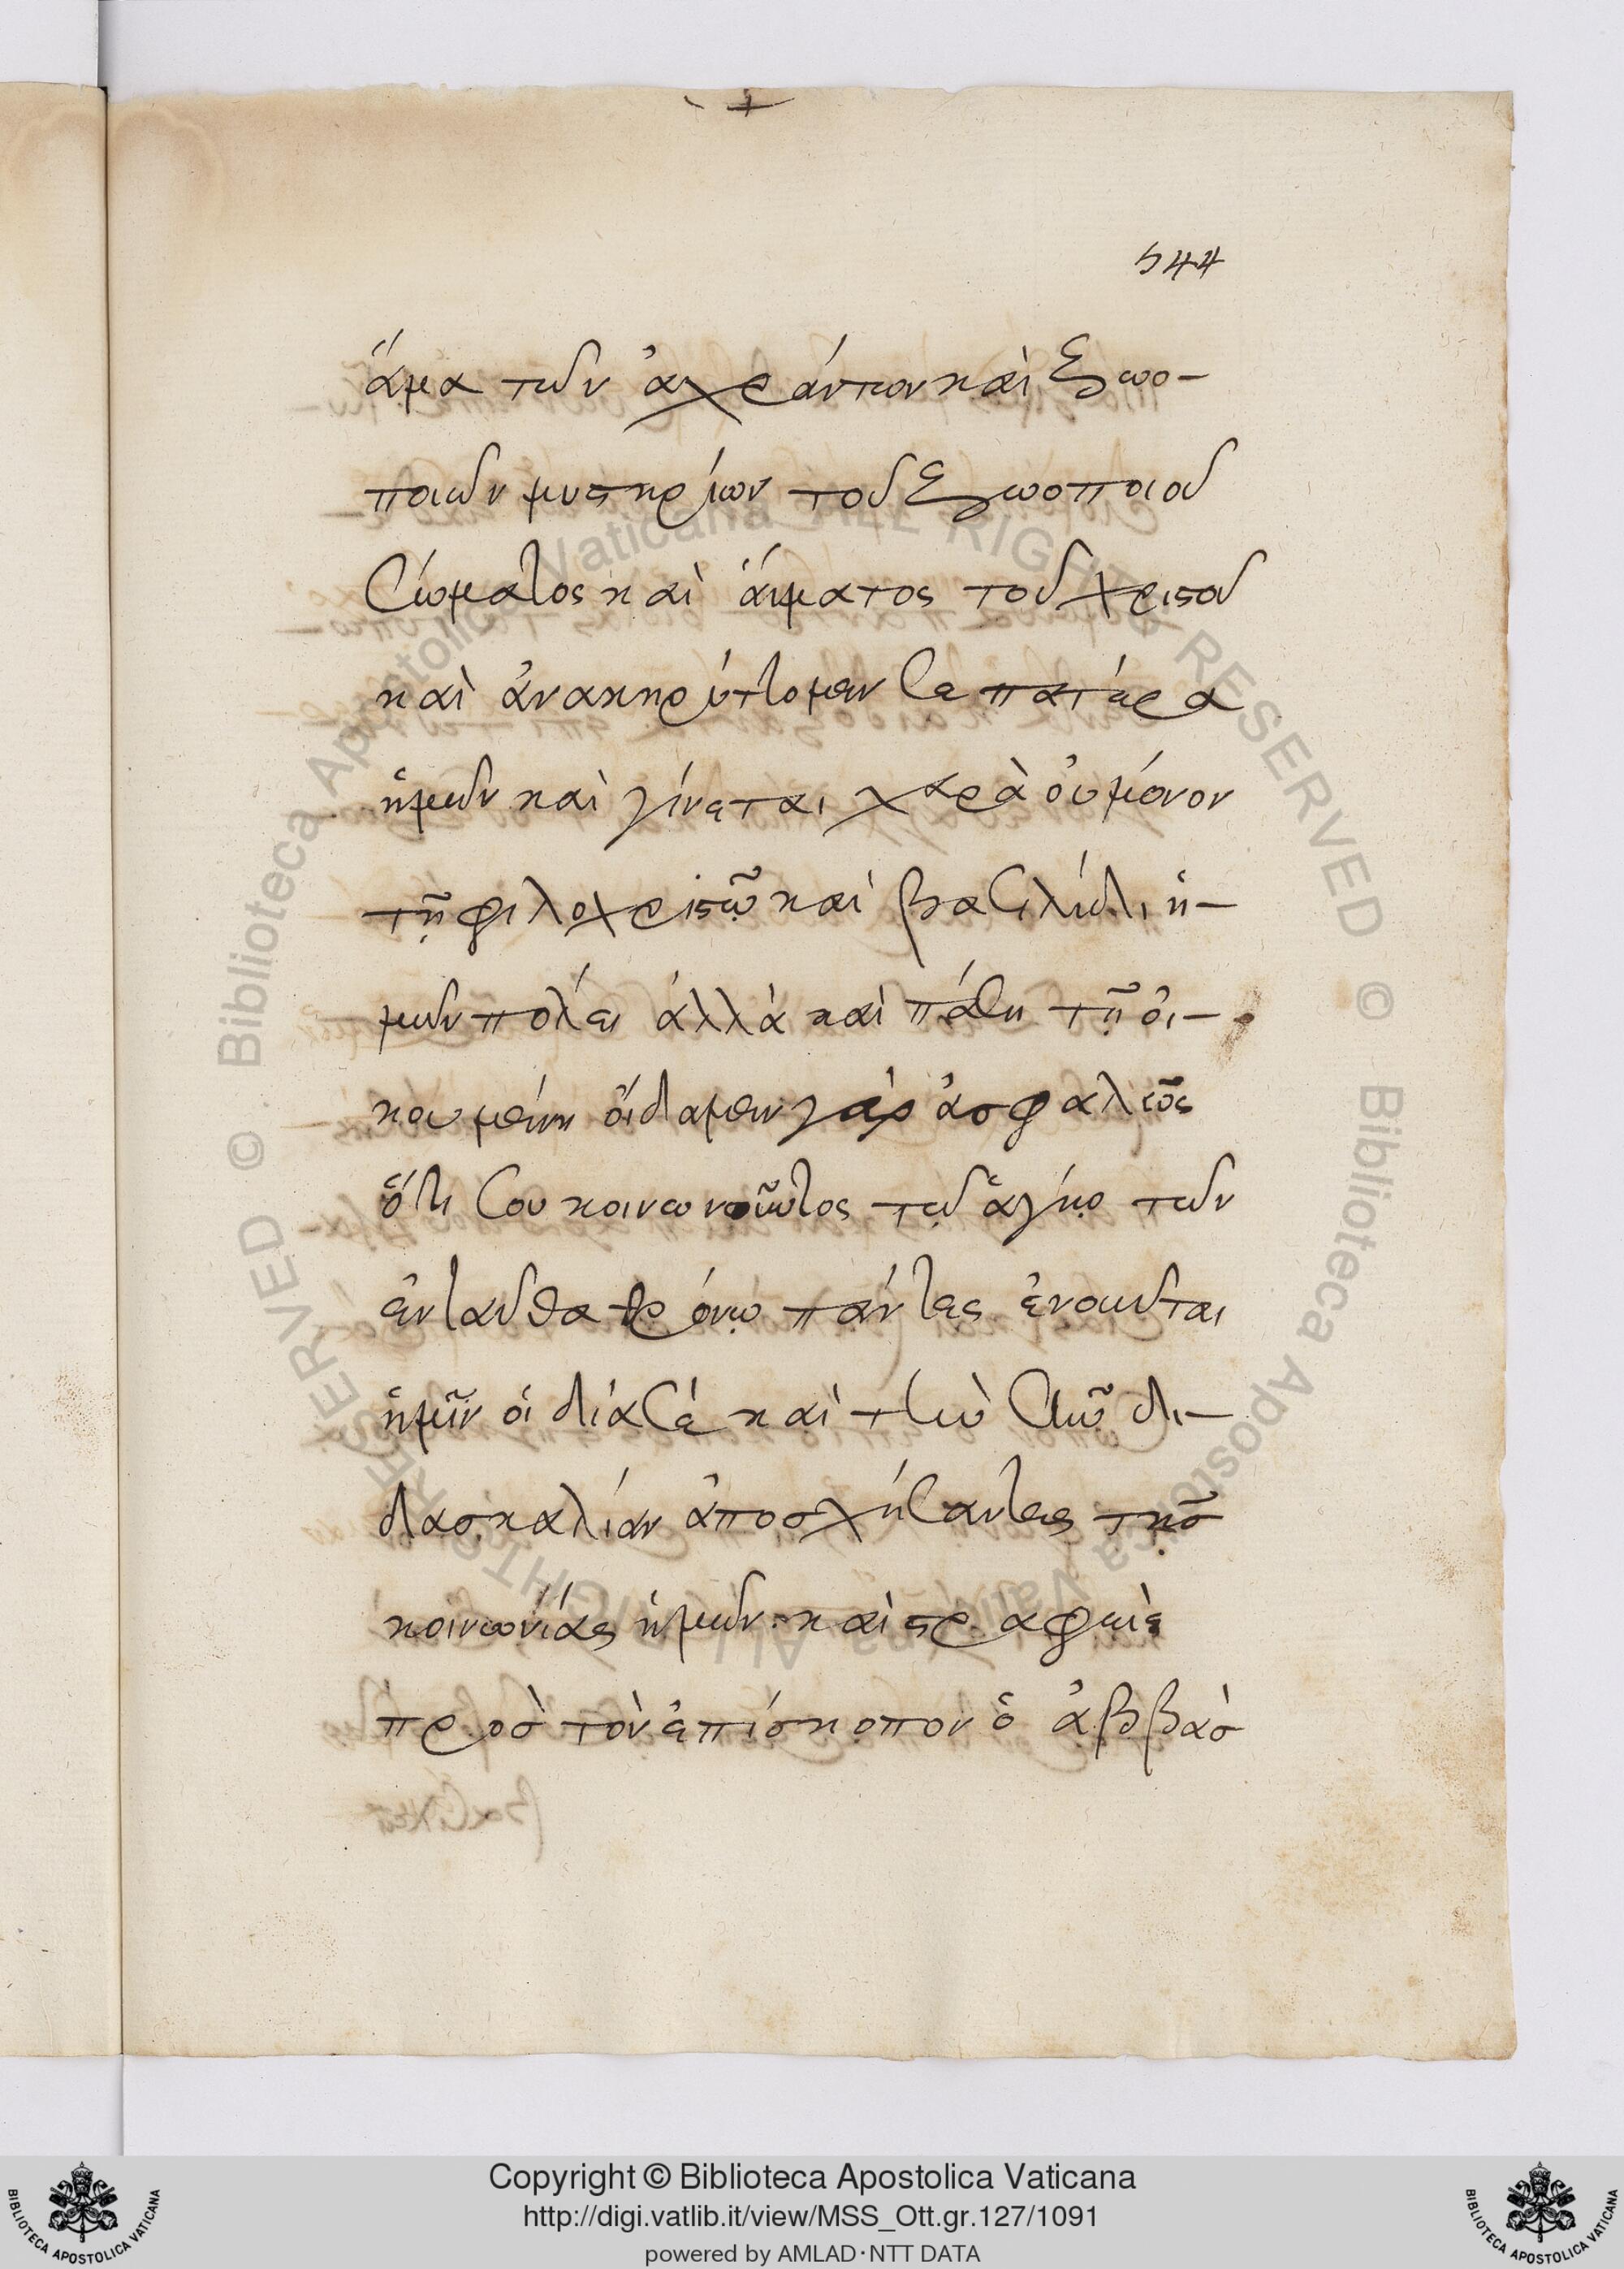 544
ἅμα τῶν ἀχράντων καὶ ζωο-
ποιῶν μυστηρίων τοῦ ζωοποιοῦ
σώματος καὶ ἅιματος τοῦ χριστοῦ
καὶ ἀνακηρύττομεν σε πατέρα
ἡμῶν καὶ γίνεται χαρὰ ὀυ μόνον
τῇ φιλοχρίστῳ καὶ βασιλίδι ἡ-
μῶν πόλει ἀλλὰ καὶ πάσῃ τῇ ὀι-
κουμένῃ ὄιδαμεν γὰρ ἀσφαλῶς
ὅτι σου κοινωνοῦντος τῷ ἁγίῳ τῶν
ἐνταῦθα θρόνῳ πάντες ἑνοῦνται
ἡμῖν ὁι διὰ σὲ καὶ τὴν σὴν δι-
δασκαλίαν ἀποσχίσαντες τῆς
κοινωνίας ἡμῶν. καὶ στραφεὶς
πρὸς τὸν ἐπίσκοπον ὁ ἀββᾶς
Copyright © Biblioteca Apostolica Vaticana
http://digi.vatlib.it/view/MSS_Ott.gr.127/1091
powered by AMLAD·NTT DATA